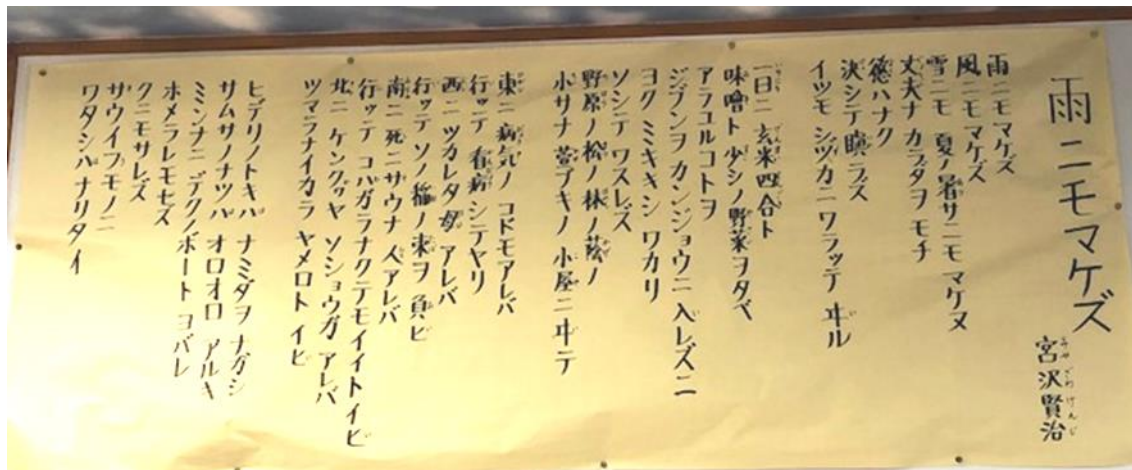 雨ニモマケズ
宮沢賢治
雨ニモマケズ
風ニモマケズ
雪ニモ 夏ノ暑サニモ マケヌ
丈夫ナ カラダヲ モチ
慾ハナク
決シテ瞋ラズ
イツモ シヅカニ ワラッテ ヰル
一日ニ 玄米四合ト
味噌ト 少シノ野菜ヲタベ
アラユルコトヲ
ジブンヲ カンジョウニ 入レズニ
ヨク ミキキシ ワカリ
ソシテ ワスレズ
野原ノ松ノ林ノ蔭ノ
小サナ 萱ブキノ 小屋ニ ヰテ
東ニ 病気ノ コドモアレバ
行ッテ 看病 シテヤリ
西ニ ツカレタ 母 アレバ
行ッテ ソノ 稲ノ 束ヲ 負ヒ
南ニ 死ニサウナ 人アレバ
行ッテ コハガラナクテモイイトイヒ
北ニ ケンクヮヤ ソショウガ アレバ
ツマラナイカラ ヤメロト イヒ
ヒデリノトキハ ナミダヲ ナガシ
サムサノナツハ オロオロ アルキ
ミンナニ デクノボート ヨバレ
ホメラレモセズ
クニモサレズ
サウイフモノニ
ワタシハ ナリタイ